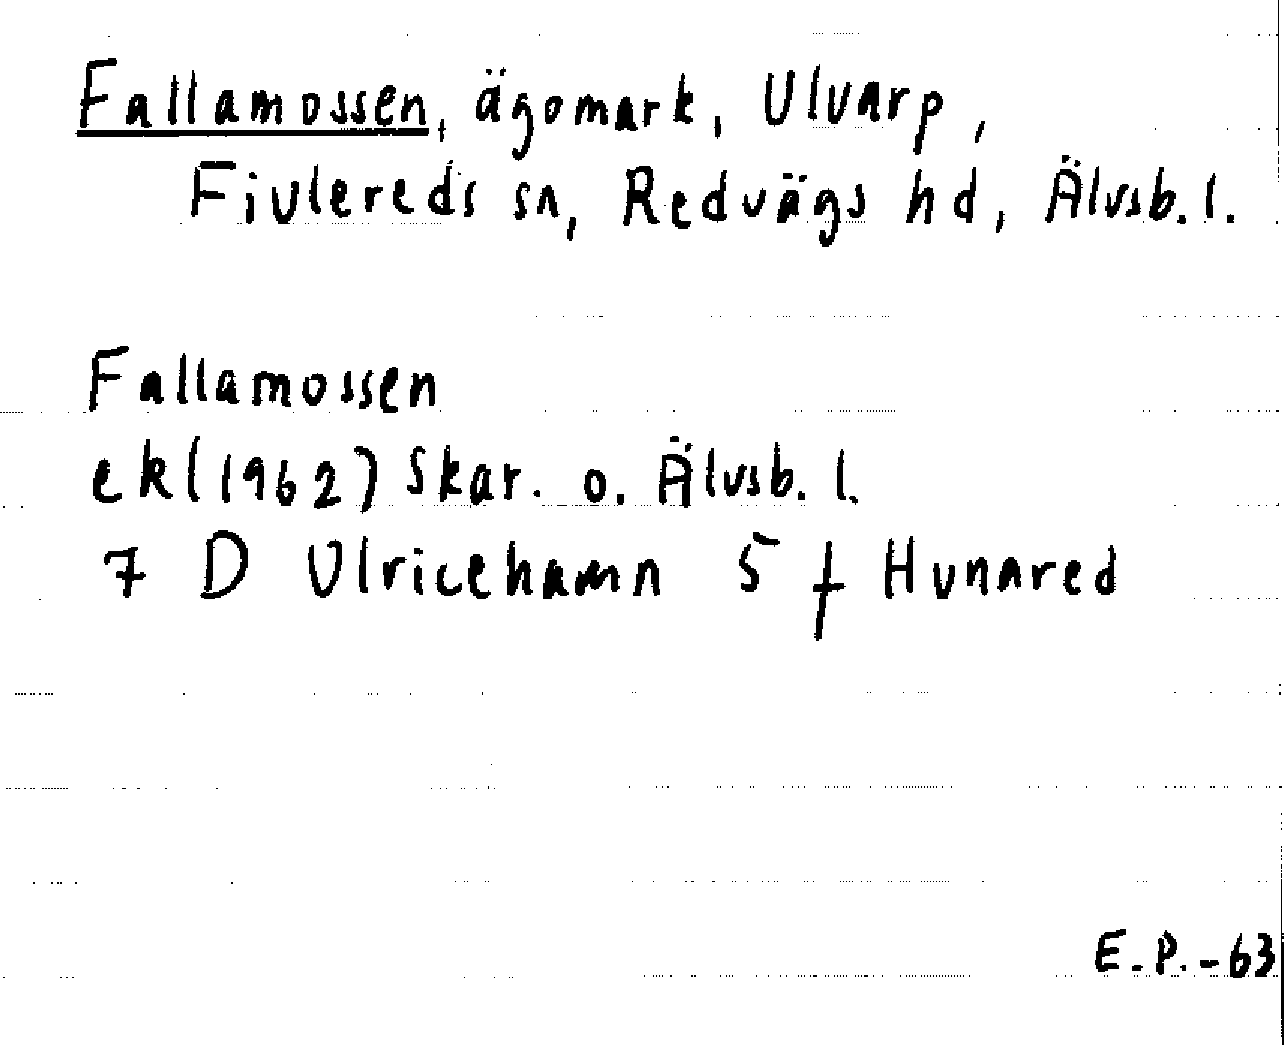 Fallamossen, ägomark, Ulvarp,
Fivlereds sn, Redvägs hd, Älvsb. l.
Fallamossen
ek (1962) Skar. o. Älvsb. l.
7 D Ulricehamn 5 f Hunnared
E.P.-63